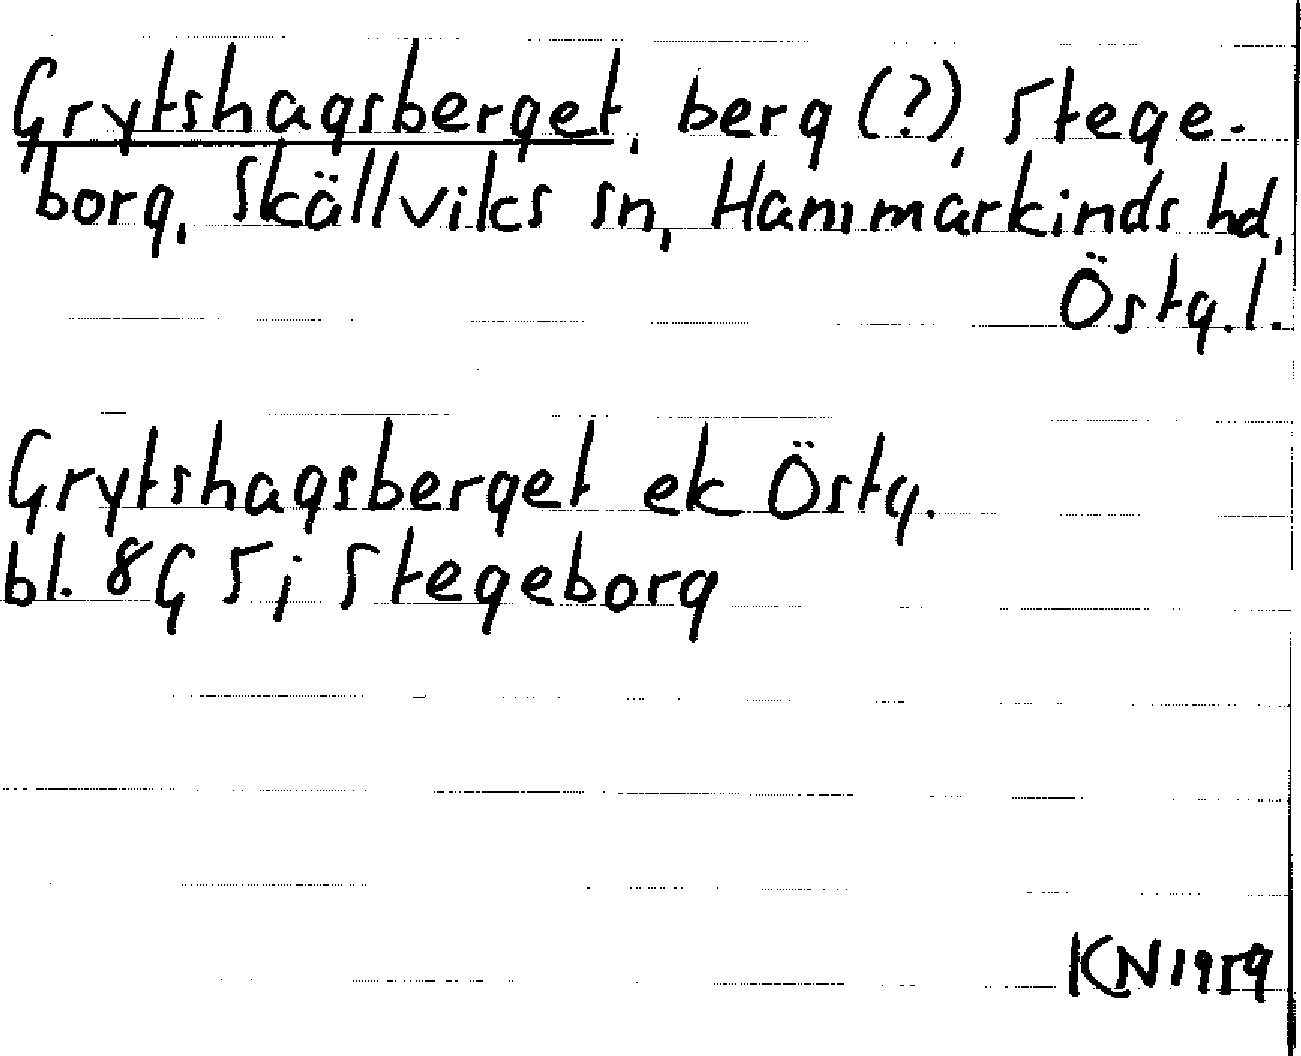 Grytshagsberget, berg (?), Stege-
borg, Skällviks sn, Hammarkinds hd,
Östg. l.
Grytshagsberget ek Östg.
bl. 8G 5j Stegeborg
KN 1959